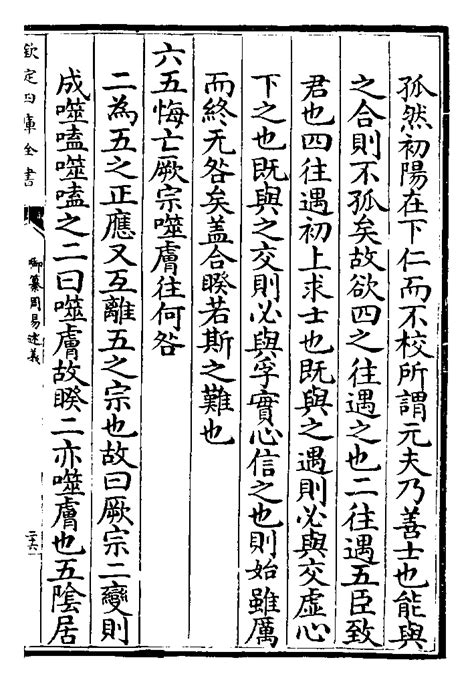 孤然初陽在下仁而不校所謂元夫乃善士也能與
之合則不孤矣故欲四之往遇之也二往遇五臣致
君也四往遇初上求士也既與之遇則必與交虛心
下之也既與之交則必與孚實心信之也則始雖厲
而終无咎矣蓋合睽若斯之難也
六五悔亡厥宗噬膚往何咎
二為五之正應又互離五之宗也故曰厥宗二變則
成噬嗑噬嗑之二曰噬膚故睽二亦噬膚也五陰居
欽定四庫全書
御纂周易述義